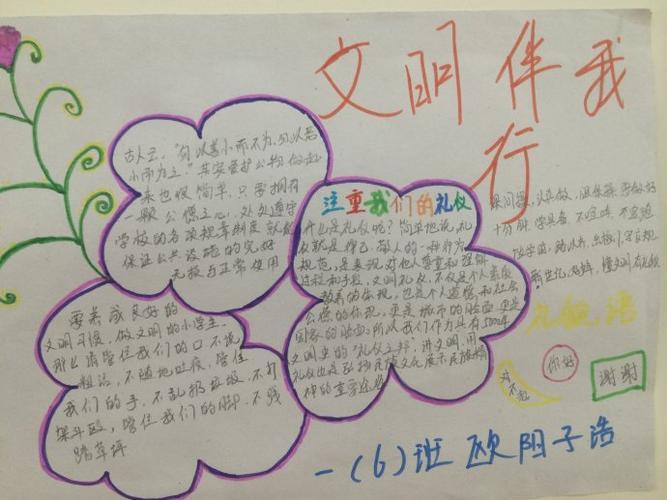 文明伴我
行
古人云："勿以善小而不为，勿以恶
小而为之。"其实爱护公物做起
来也很简单，只要拥有
一颗公德之心，处处遵守
学校的各项规章制度就能
保证公共设施的完好
无损与正常使用
注重我们的礼仪
什么是礼仪呢？简单地说，礼
仪就是律己、敬人的一种行为
规范，是表现对他人尊重和理解
过程和手段。文明礼仪，不仅是个人素质
教养的体现，也是个人道德和社会
公德的体现。更是城市的脸面，更是
国家的脸面。所以我们作为具有5000年
文明史的"礼仪之邦"，讲文明，用
礼仪也是弘扬民族文化展示民族精
神的重要途径
要养成良好的
文明习惯，做文明的小学生，
那么请管住我们的口，不说
粗话，不随地吐痰，管住
我们的手，不乱扔垃圾，不打
架斗殴，管住我们的脚，不践
踏草坪
课间操，认真做
十分钟
礼貌语
对不起
你好
谢谢
一（6）班 欧阳子浩